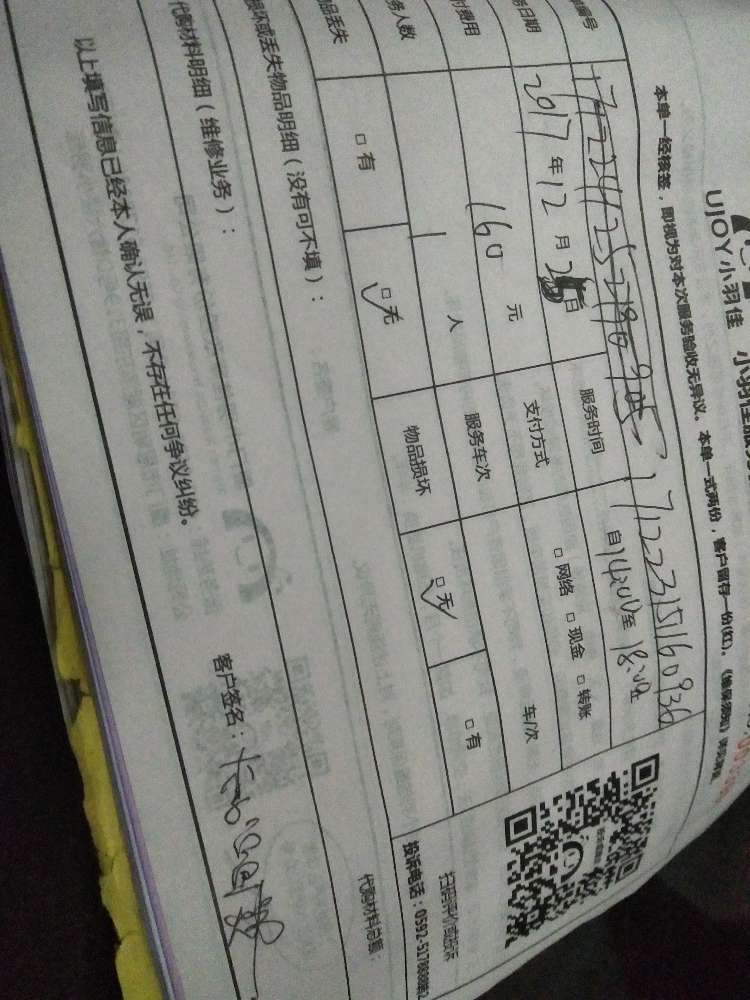 UJOY小羽佳
本单一经核签，即视为对本次服务验收无异议。本单一式两份，客户留存一份(红)。
编号 17122315160936
日期 2017年12月25日 服务时间 自14:00至18:00
费用 160元 支付方式 □网络 □现金 □转账
务人数 1人 服务车次 车/次
品丢失 □有 □无 物品损坏 □无 □有
损坏或丢失物品明细（没有可不填）：
扫码评价或投诉
投诉电话：0592-5178888转2
代购材料明细（维修业务）：
代购材料总额：
以上填写信息已经本人确认无误，不存在任何争议纠纷。
客户签名：